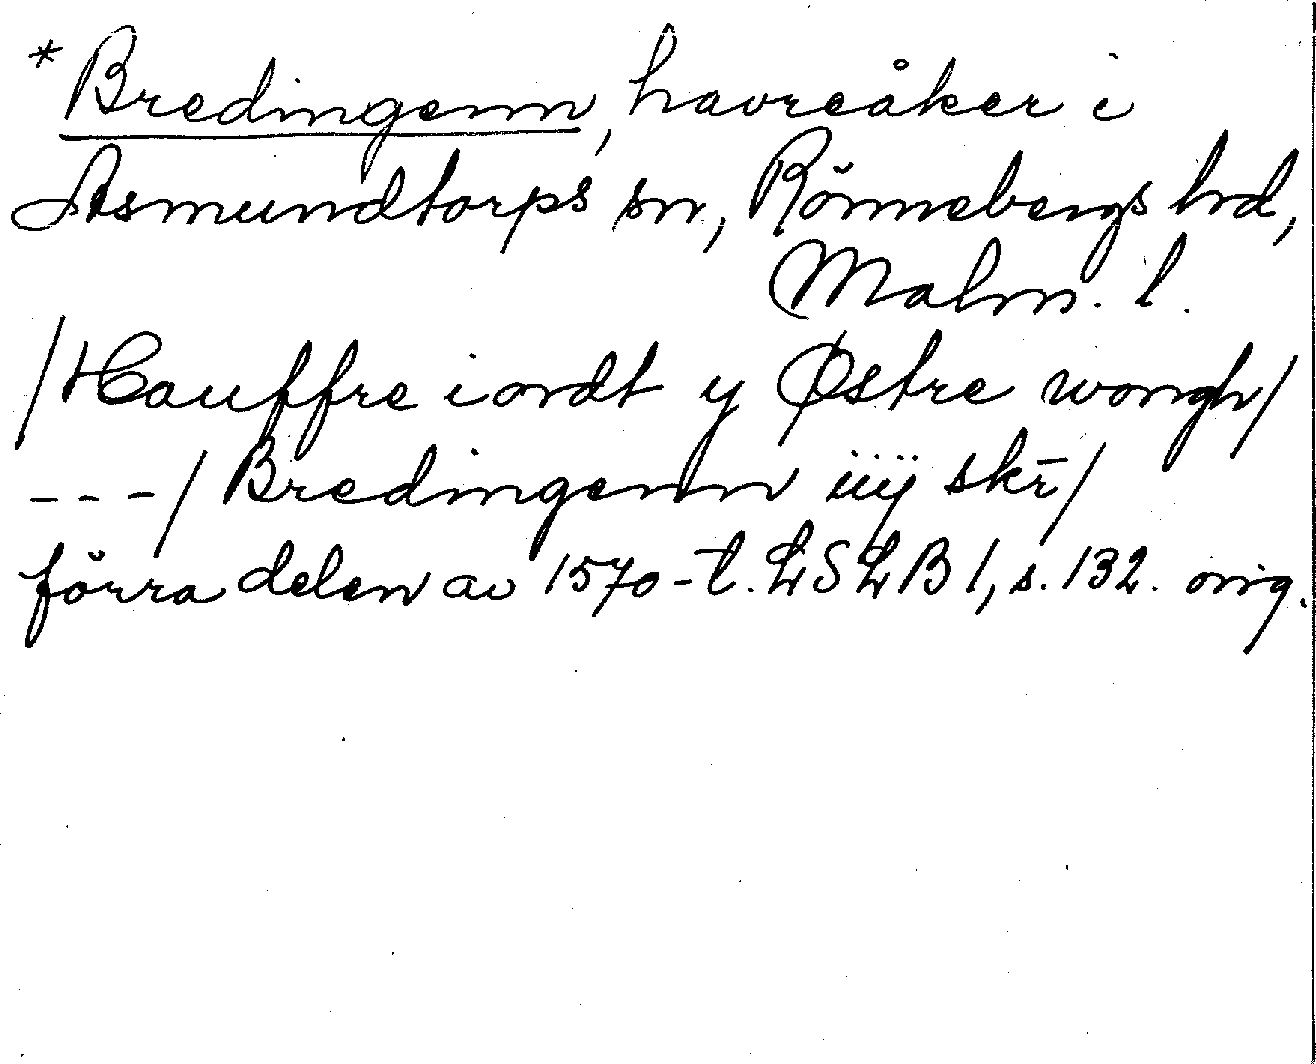 *Bredingenn, havreåker i
Asmundtorps sn, Rönnebergs hd,
Malm. l.
/Hauffre iordt y Østre wongh/
---/Bredingenn iiij skr̄/
förra delen av 1570-t. LSLB 1, s. 132. orig.